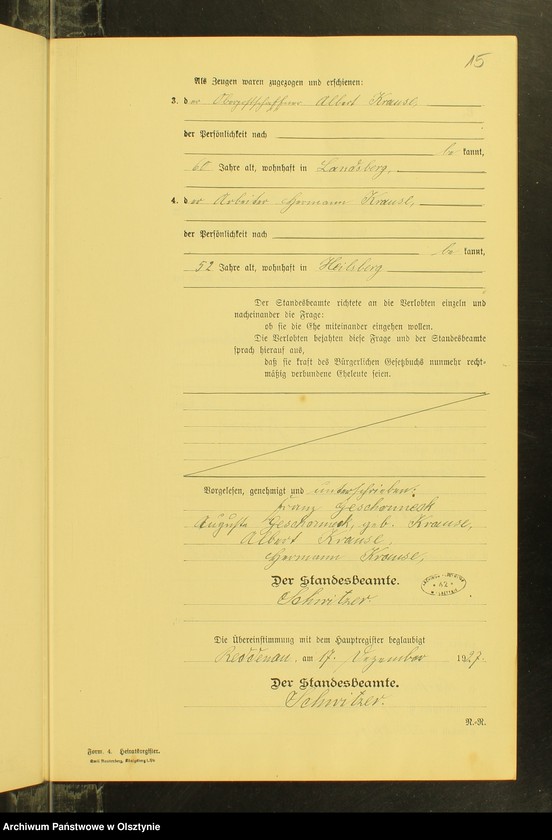 15
Als Zeugen waren zugezogen und erschienen:
3. der Albert Krause,
der Persönlichkeit nach
be kannt,
60 Jahre alt, wohnhaft in Landsberg,
4. der Arbeiter Hermann Krause,
der Persönlichkeit nach
be kannt,
52 Jahre alt, wohnhaft in Heilsberg
Der Standesbeamte richtete an die Verlobten einzeln und
nacheinander die Frage:
ob sie die Ehe miteinander eingehen wollen.
Die Verlobten bejahten diese Frage und der Standesbeamte
sprach hierauf aus,
daß sie kraft des Bürgerlichen Gesetzbuchs nunmehr recht-
mäßig verbundene Eheleute seien.
Vorgelesen, genehmigt und unterschrieben:
Franz Geschonneck
Auguste Geschonneck, geb. Krause,
Albert Krause,
Hermann Krause,
Der Standesbeamte.
Schwitzer.
Die Übereinstimmung mit dem Hauptregister beglaubigt
Reddenau, am 17. Dezember 1927.
Der Standesbeamte.
Schwitzer.
N.-R.
Form. 4. Heiratsregister.
Archiwum Państwowe w Olsztynie